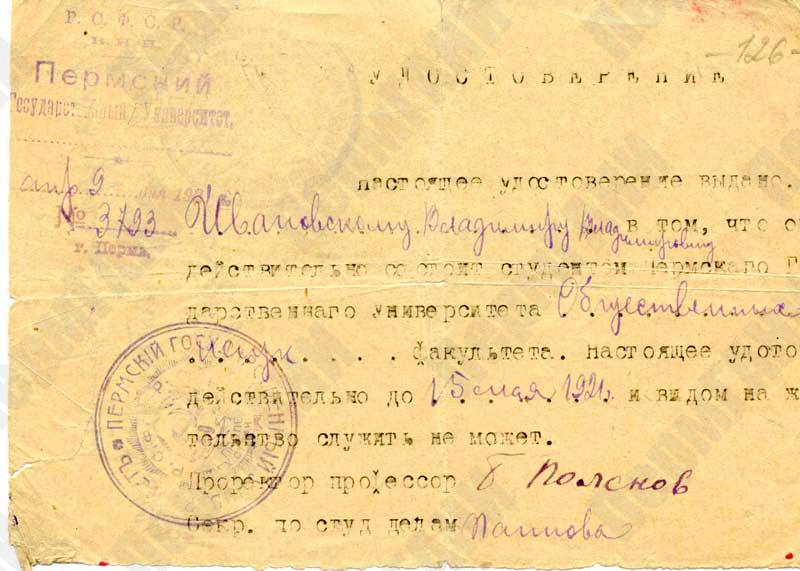 Р. С. Ф. С. Р.
Н. К. П.
Пермский
Государственный Университет.
апр. 9 дня 192
№ 3793
г. Пермь.
-126-
УДОСТОВЕРЕНИЕ
настоящее удостоверение выдано.
Ивановскому Владимиру Владимировичу в том, что о
действительно состоит студентом Пермскаго Г
дарственнаго Университета Общественных
Наук . . . . факультета. Настоящее удото
действительно до 15 мая 1921г. и видом на ж
тельство служить не может.
Проректор профессор Б Поленов
Секр. по студ делам
ПЕРМСКІЙ ГОСУ СТВЕННЫЙ